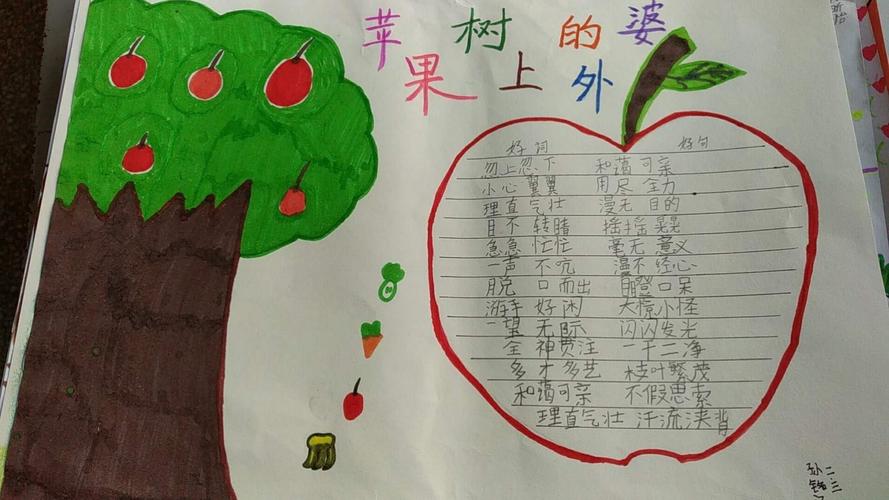 苹果树上的外婆
好词 好句
忽上忽下 和蔼可亲
小心翼翼 用尽全力
理直气壮 漫无目的
目不转睛 摇摇晃晃
急急忙忙 毫无意义
一声不吭 漫不经心
脱口而出 目瞪口呆
游手好闲 大惊小怪
一望无际 闪闪发光
全神贯注 一干二净
多才多艺 枝叶繁茂
和蔼可亲 不假思索
理直气壮 汗流浃背
孙 二.三